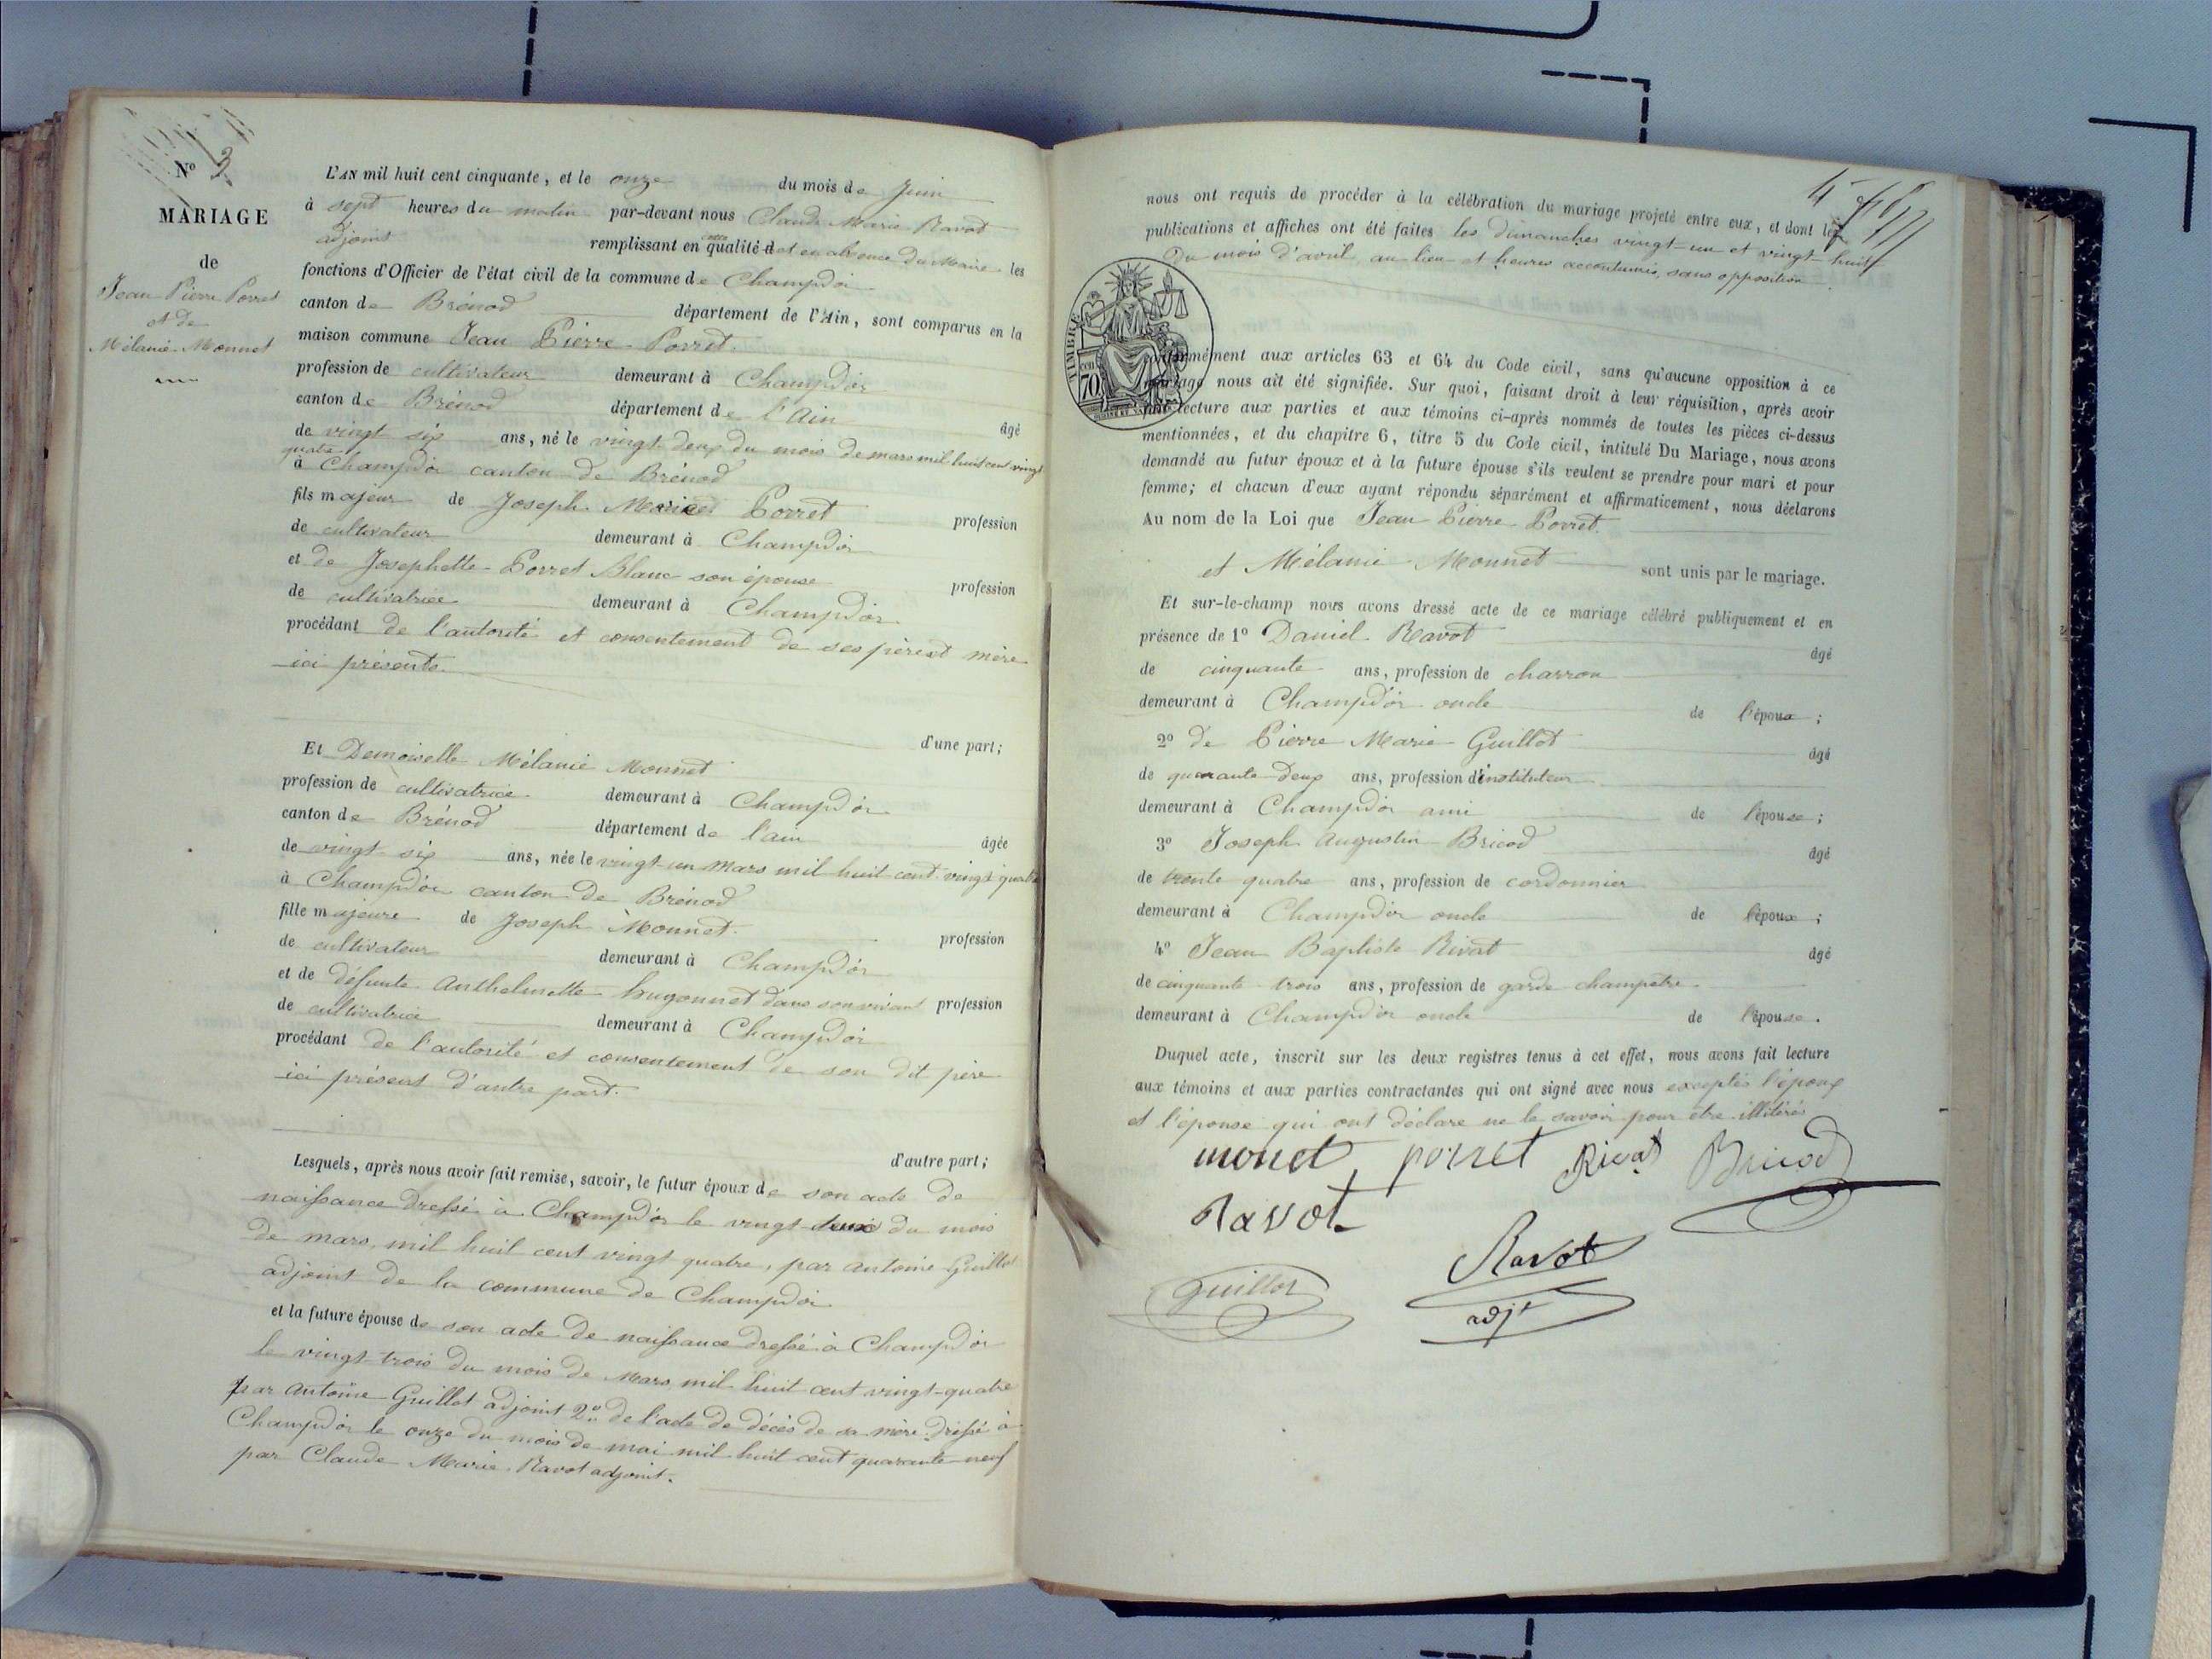 N.º 3
MARIAGE
de
Jean Pierre Porret
et de
Mélanie Monnet
L'AN mil huit cent cinquante, et le onze du mois de Juin
à sept heures du matin par-devant nous Claude Marie Ravot
adjoint remplissant en cette qualité et en absence du Maire les
fonctions d'Officier de l'état civil de la commune de Champdor
canton de Brénod département de l'Ain, sont comparus en la
maison commune Jean Pierre Porret.
profession de cultivateur demeurant à Champdor
canton de Brénod département de l'Ain âgé
de vingt six ans, né le vingt deux du mois de mars mil huit cent vingt
quatre
à Champdor canton de Brénod
fils majeur de Joseph Marie Porret profession
de cultivateur demeurant à Champdor
et de Josephette Porret Blanc son épouse profession
de cultivatrice demeurant à Champdor
procédant de l'autorité et consentement de ses père et mère
ici présents.
d'une part;
Et Demoiselle Mélanie Monnet
profession de cultivatrice demeurant à Champdor
canton de Brénod département de l'ain âgée
de vingt six ans, née le vingt-un Mars mil huit cent vingt quatre
à Champdor canton de Brénod
fille majeure de Joseph Monnet. profession
de cultivateur demeurant à Champdor
et de défunte Anthelmette hugonnet dans son vivant profession
de cultivatrice demeurant à Champdor
procédant de l'autorité et consentement de son dit père
ici présent d'autre part.
d'autre part;
Lesquels, après nous avoir fait remise, savoir, le futur époux de son acte de
naissance dressé à Champdor le vingt-deux du mois
de mars, mil huit cent vingt quatre, par Antoine Guillot
adjoint de la commune de Champdor
et la future épouse de son acte de naissance dressé à Champdor
le vingt-trois du mois de Mars mil huit cent vingt-quatre
par Antoine Guillot adjoint 2º de l'acte de décès de sa mère dressé à
Champdor le onze du mois de mai mil huit cent quarante-neuf
par Claude Marie Ravot adjoint.
nous ont requis de procéder à la célébration du mariage projeté entre eux, et dont les
publications et affiches ont été faites les dimanches vingt-un et vingt-huit
du mois d'avril, au lieu et heures accoutumés, sans opposition
TIMBRE
70
conformément aux articles 63 et 64 du Code civil, sans qu'aucune opposition à ce
mariage nous ait été signifiée. Sur quoi, faisant droit à leur réquisition, après avoir
fait lecture aux parties et aux témoins ci-après nommés de toutes les pièces ci-dessus
mentionnées, et du chapitre 6, titre 5 du Code civil, intitulé Du Mariage, nous avons
demandé au futur époux et à la future épouse s'ils veulent se prendre pour mari et pour
femme; et chacun d'eux ayant répondu séparément et affirmativement, nous déclarons
Au nom de la Loi que Jean Pierre Porret.
et Mélanie Monnet sont unis par le mariage.
Et sur-le-champ nous avons dressé acte de ce mariage célébré publiquement et en
présence de 1º Daniel Ravot âgé
de cinquante ans, profession de charron
demeurant à Champdor oncle de l'époux;
2º de Pierre Marie Guillot âgé
de quarante-deux ans, profession d'instituteur
demeurant à Champdor ami de l'épouse;
3º Joseph Augustin Bricod âgé
de trente quatre ans, profession de cordonnier
demeurant à Champdor oncle de l'époux;
4º Jean Baptiste Rivat âgé
de cinquante trois ans, profession de garde champetre
demeurant à Champdor oncle de l'épouse.
Duquel acte, inscrit sur les deux registres tenus à cet effet, nous avons fait lecture
aux témoins et aux parties contractantes qui ont signé avec nous exceptés l'époux
et l'épouse qui ont déclaré ne le savoir pour être illitérés
monet porret Rivat Bricod
Ravot
Guillot Ravot
adjt